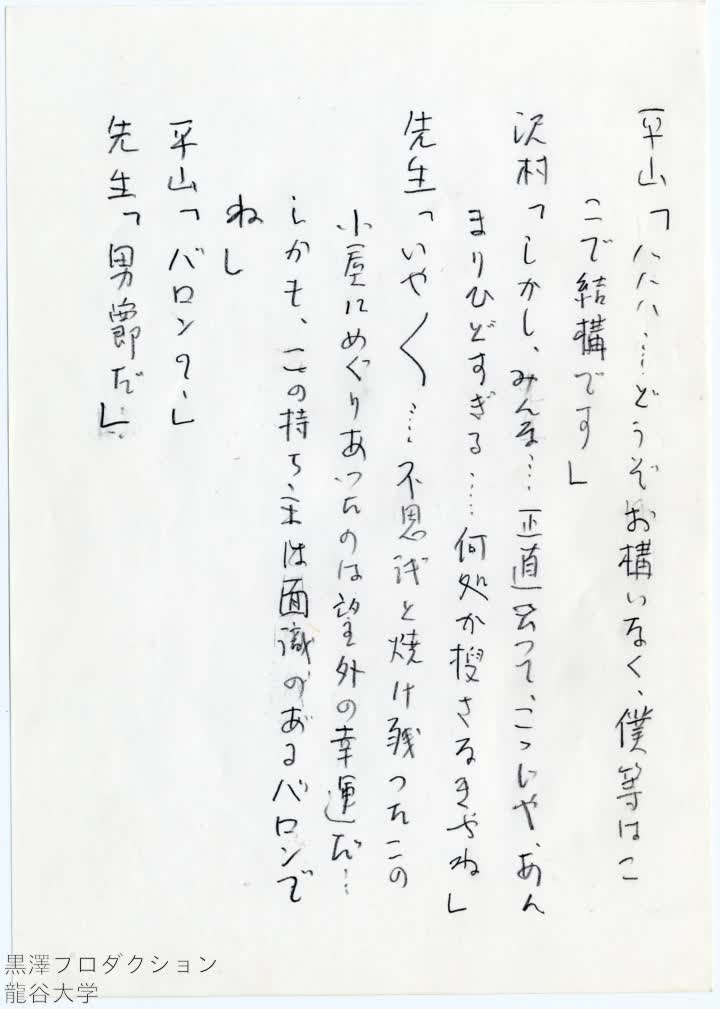 平山「ハハハ……どうぞお構いなく、僕等はこ
こで結構です」
沢村「しかし、みんな……正直云って、こゝじや、あん
まりひどすぎる……何処か捜さなきやね」
先生「いや〱……不思議と焼け残ったこの
小屋にめぐりあったのは望外の幸運だ……
しかも、この持ち主は面識のあるバロンで
ね」
平山「バロン？」
先生「男爵だ……」
黒澤プロダクション
龍谷大学